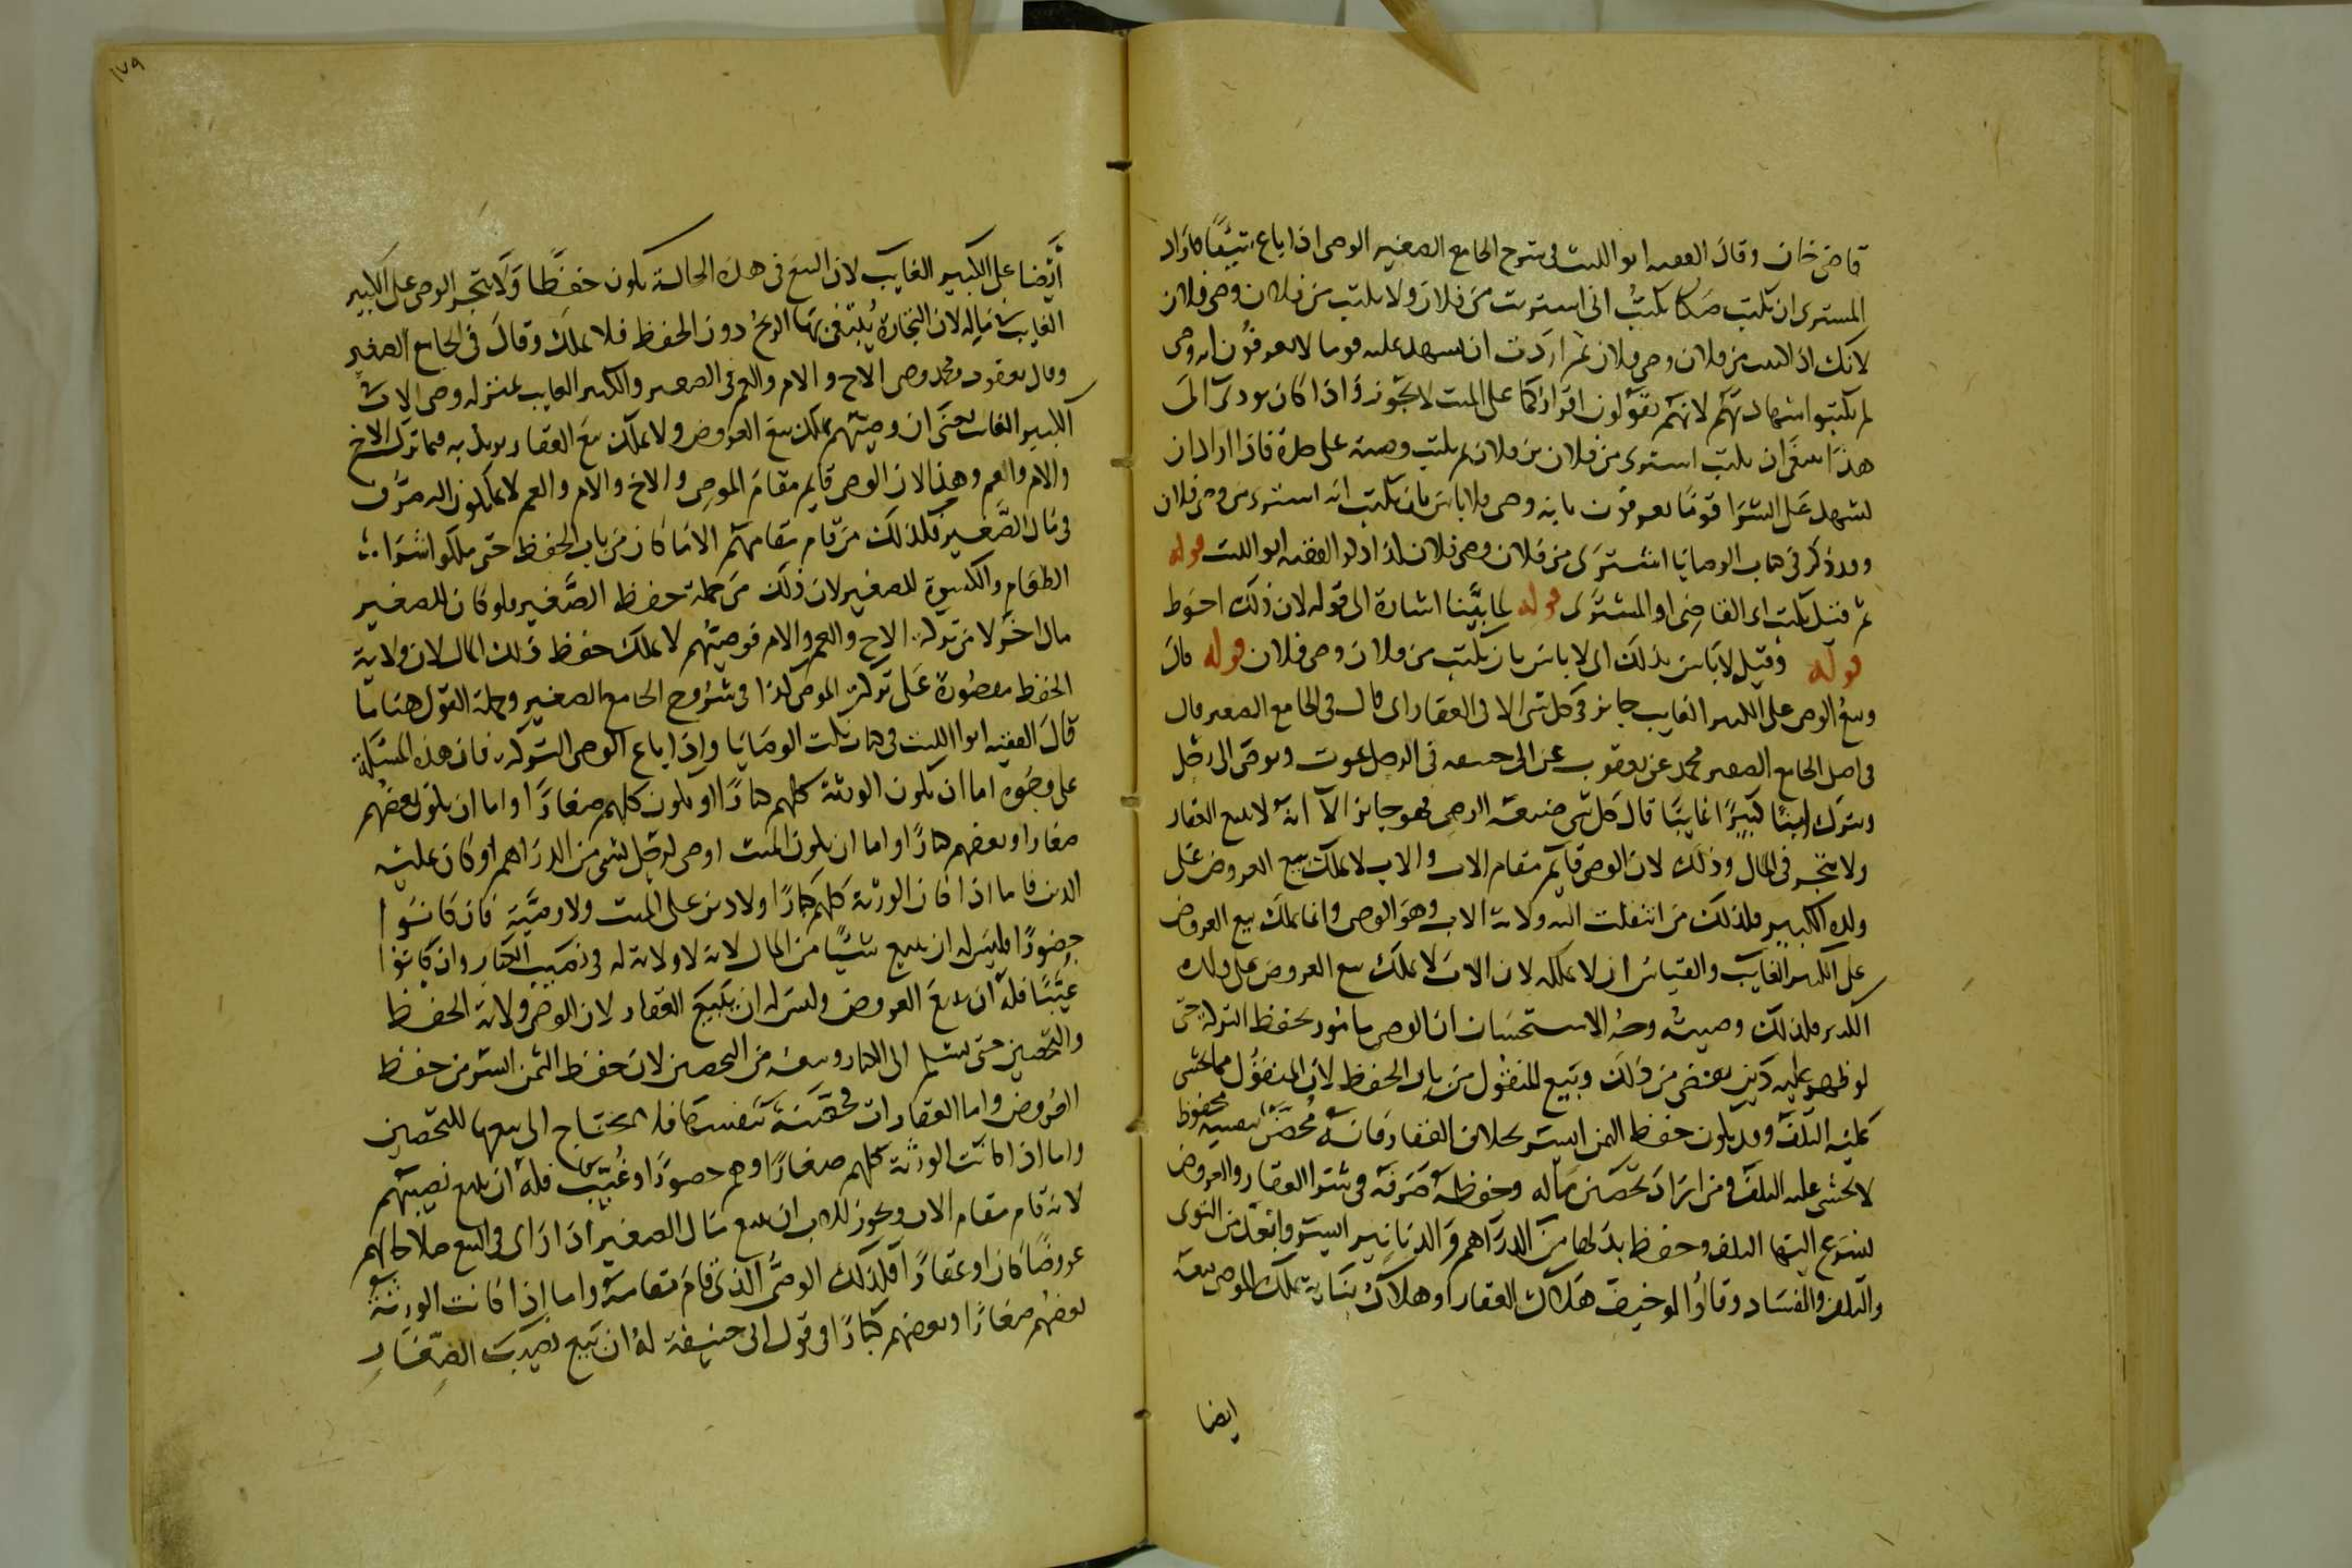 قاضي خان وقال الفقيه ابو الليث في شرح الجامع الصغير الوصي اذا باع شيئا فاراد
المشتري ان يكتب صكا يكتب اني اشتريت من فلان ولا يكتب من فلان وصي فلان
لانك اذا كتبت من فلان وصي فلان ثم اردت ان يشهد عليه قوما لا يعرفون انه وصي
لم يكتبوا شهادتهم لانهم يقولون اقرارنا على الميت لا يجوز واذا كان يودي الى
هذا ينبغي ان يكتب اشترى من فلان بن فلان ثم يكتب وصيته على حدة فاذا اراد ان
يشهد على الشرا قوما يعرفون بانه وصي فلا باس بان يكتب انه اشترى من وصي فلان
وقد ذكر في كتاب الوصايا اشترى من فلان وصي فلان كذا ذكر الفقيه ابو الليث قوله
ثم قيل يكتب اي القاضي او المشتري قوله لما بينا اشارة الى قوله لان ذلك احوط
قوله وقيل لا باس بذلك اي لا باس بان يكتب من فلان وصي فلان قوله قال
وبيع الوصي على الكبير الغايب جايز في كل شي الا في العقار اي قال في الجامع الصغير قال
في اصل الجامع الصغير محمد عن يعقوب عن ابي حنيفة في الرجل يموت ويوصي الى رجل
ويترك ابنا كبيرا غايبا قال كل شي صنعه الوصي فهو جايز الا انه لا يبيع العقار
ولا يتجر في المال وذلك لان الوصي قايم مقام الاب والاب لا يملك بيع العروض على
ولده الكبير فكذلك من انتقلت اليه ولاية الاب وهو الوصي وانما يملك بيع العروض
على الكبير الغايب والقياس ان لا يملكه لان الاب لا يملك بيع العروض على ولده
الكبير فكذلك وصيه وجه الاستحسان ان الوصي مامور بحفظ التركة حتى
لو ظهر عليه دين يقضي من ذلك وبيع المنقول من باب الحفظ لان المنقول مما يخشى
عليه التلف وقد يكون حفظ الثمن ايسر بخلاف العقار فانه محصن بنفسه محفوظ
لا يخشى عليه التلف ومن اراد تحصين ماله وحفظه صرفه في شرا العقار والعروض
يسرع اليها التلف وحفظ بدلها من الدراهم والدنانير ايسر وابعد من التوى
والتلف والفساد وقالوا لو خيف هلاك العقار او هلاك بنايه يملك الوصي بيعه
ايضا
١٧٩
ايضا على الكبير الغايب لان البيع في هذه الحالة يكون حفظا ولا يتجر الوصي على الكبير
الغايب في ماله لان التجارة يبتغى بها الربح دون الحفظ فلا يملك وقال في الجامع الصغير
وقال يعقوب ومحمد وصي الاخ والام والعم في الصغير والكبير الغايب بمنزلة وصي الاب في
الكبير الغايب يعني ان وصيهم يملك بيع العروض ولا يملك بيع العقار يريد به فيما ترك الاخ
والام والعم وهذا لان الوصي قايم مقام الموصي والاخ والام والعم لا يملكون التصرف
في مال الصغير فكذلك من قام مقامهم الا ما كان من باب الحفظ حتى ملكوا شرا
الطعام والكسوة للصغير لان ذلك من جملة حفظ الصغير ولو كان للصغير
مال اخر لا من تركة الاخ والعم والام فوصيهم لا يملك حفظ ذلك المال لان ولاية
الحفظ مقصورة على تركة الموصي كذا في شروح الجامع الصغير وجملة القول هنا ما
قال الفقيه ابو الليث في كتاب نكت الوصايا واذا باع الوصي التركة فان هذه المسئلة
على وجوه اما ان يكون الورثة كلهم كبارا او يكون كلهم صغارا واما ان يكون بعضهم
صغارا وبعضهم كبارا واما ان يكون الميت اوصى لرجل بشي من الدراهم او كان عليه
الدين فاما اذا كان الورثة كلهم كبارا ولا دين على الميت ولا وصية فان كانوا
حضورا فليس له ان يبيع شيئا من المال لانه لا ولاية له في نصيب الكبار وان كانوا
غيبا فله ان يبيع العروض وليس له ان يبيع العقار لان للوصي ولاية الحفظ
والتحصين حتى يسلم الى الكبار وبيعه من التحصين لان حفظ الثمن ايسر من حفظ
العروض واما العقارات محصنة بنفسها فلا يحتاج الى بيعها للتحصين
واما اذا كانت الورثة كلهم صغارا وهم حضورا او غيبا فله ان يبيع نصيبهم
لانه قام مقام الاب ويجوز للاب ان يبيع مال الصغير اذا راى في البيع صلاحا لهم
عروضا كان او عقارا فكذلك الوصي الذي قام مقامه واما اذا كانت الورثة
بعضهم صغارا وبعضهم كبارا ففي قول ابي حنيفة له ان يبيع نصيب الصغار